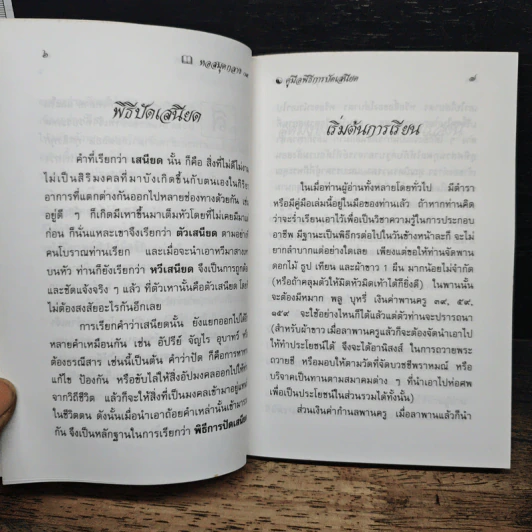 ๖ หอสมุดกลาง
พิธีปัดเสนียด
คำที่เรียกว่า เสนียด นั้น ก็คือ สิ่งที่ไม่ดีไม่งาม
ไม่เป็นสิริมงคลที่มาบังเกิดขึ้นกับตนเองในกิริ
อาการที่แตกต่างกันออกไปหลายช่องทางด้วยกัน เช่น
อยู่ดี ๆ ก็เกิดมีเหาขึ้นมาเต็มหัวโดยที่ไม่เคยมีมา
ก่อน ก็นั่นแหละเขาจึงเรียกว่า ตัวเสนียด ตามอย่าง
คนโบราณท่านเรียก และเมื่อจะนำเอาหวีมาสาง
บนหัว ท่านก็ยังเรียกว่า หวีเสนียด จึงเป็นการถูกต้อง
และชัดแจ้งจริง ๆ แล้ว ที่ตัวเหานั้นคือตัวเสนียด โดย
ไม่ต้องสงสัยอะไรกันอีกเลย
การเรียกคำว่าเสนียดนั้น ยังแยกออกไปได้
หลายคำเหมือนกัน เช่น อัปรีย์ จัญไร อุบาทว์ หรือ
ต้องธรณีสาร เช่นนี้เป็นต้น คำว่าปัด ก็คือการ
แก้ไข ป้องกัน หรือขับไล่ให้สิ่งอัปมงคลออกไปให้
จากวิถีชีวิต แล้วก็จะให้สิ่งที่เป็นมงคลเข้ามาอยู่
ในชีวิตตน ดังนั้นเมื่อนำเอาถ้อยคำเหล่านั้นเข้ามา
กัน จึงเป็นหลักฐานในการเรียกว่า พิธีการปัดเสนียด
คู่มือพิธีการปัดเสนียด ๗
เริ่มต้นการเรียน
ในเมื่อท่านผู้อ่านทั้งหลายโดยทั่วไป มีตำรา
หรือมีคู่มือเล่มนี้อยู่ในมือของท่านแล้ว ถ้าหากท่านคิด
ว่าจะร่ำเรียนเอาไว้เพื่อเป็นวิชาความรู้ในการประกอบ
อาชีพ มีฐานะเป็นพิธีกรต่อไปในวันข้างหน้าละก็ จะไม่
ยากลำบากแต่อย่างใดเลย เพียงแต่ขอให้ท่านจัดพาน
ดอกไม้ ธูป เทียน และผ้าขาว 1 ผืน มากน้อยไม่จำกัด
(หรือถ้าคลุมตัวให้มิดหัวมิดเท้าได้ก็ยิ่งดี) ในพานนั้น
จะต้องมีหมาก พลู บุหรี่ เงินค่าพานครู ๓๙, ๕๙,
๑๕๙ จะใช้อย่างไหนก็ได้แล้วแต่ตัวท่านจะปรารถนา
(สำหรับผ้าขาว เมื่อลาพานครูแล้วก็จะต้องจัดนำเอาไป
ให้ทำประโยชน์ได้ จึงจะได้อานิสงส์ ในการถวายพระ
ถวายชี หรือมอบให้ตามวัดที่จัดบวชชีพราหมณ์ หรือ
บริจาคเป็นทานตามสมาคมต่าง ๆ ที่นำเอาไปห่อศพ
เพื่อเป็นประโยชน์ในส่วนรวมได้ทั้งนั้น)
ส่วนเงินค่ากำนลพานครู เมื่อลาพานแล้วก็นำ